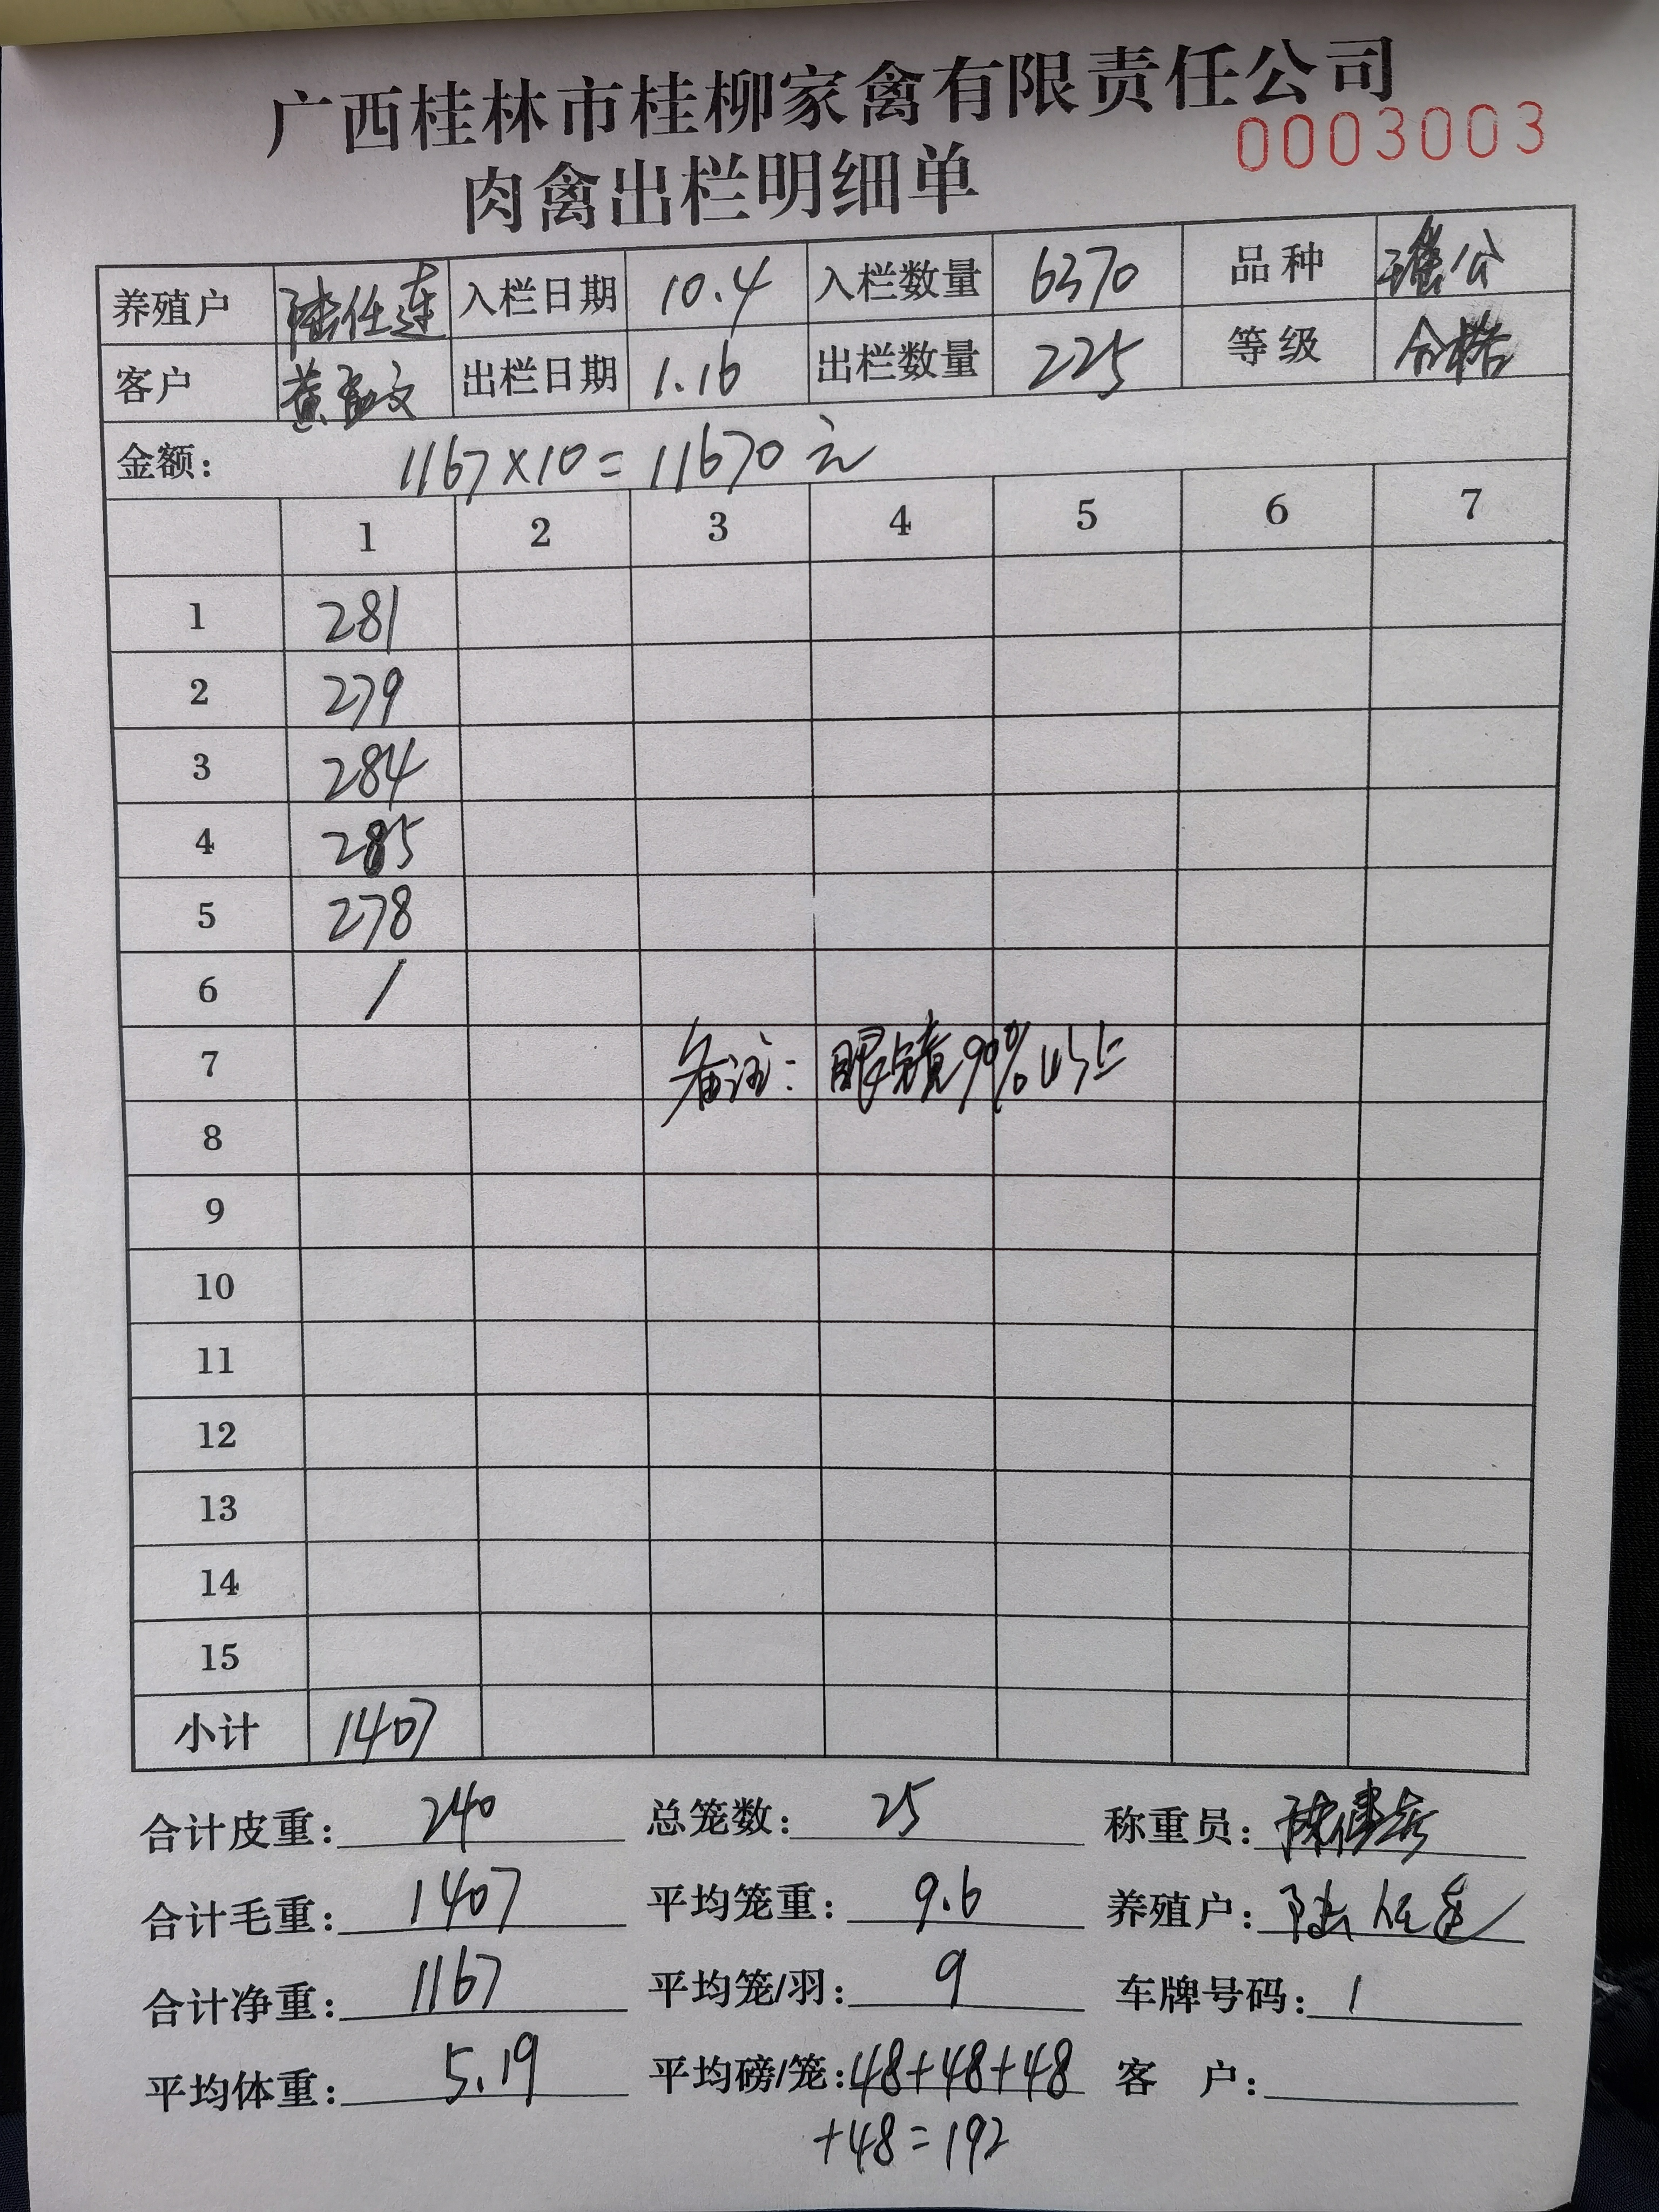 广西桂林市桂柳家禽有限责任公司
0003003
肉禽出栏明细单
养殖户 陆任莲 入栏日期 10.4 入栏数量 6370 品种 瑶公
客户 黄文 出栏日期 1.16 出栏数量 225 等级 合格
金额: 1167×10=11670元
1 2 3 4 5 6 7
1 281
2 279
3 284
4 285
5 278
6 /
7 备注: 眼镜90%以上
8
9
10
11
12
13
14
15
小计 1407
合计皮重: 240 总笼数: 25 称重员: 陈
合计毛重: 1407 平均笼重: 9.6 养殖户: 陆任莲
合计净重: 1167 平均笼/羽: 9 车牌号码: 1
平均体重: 5.19 平均磅/笼: 48+48+48 客 户:
+48=192